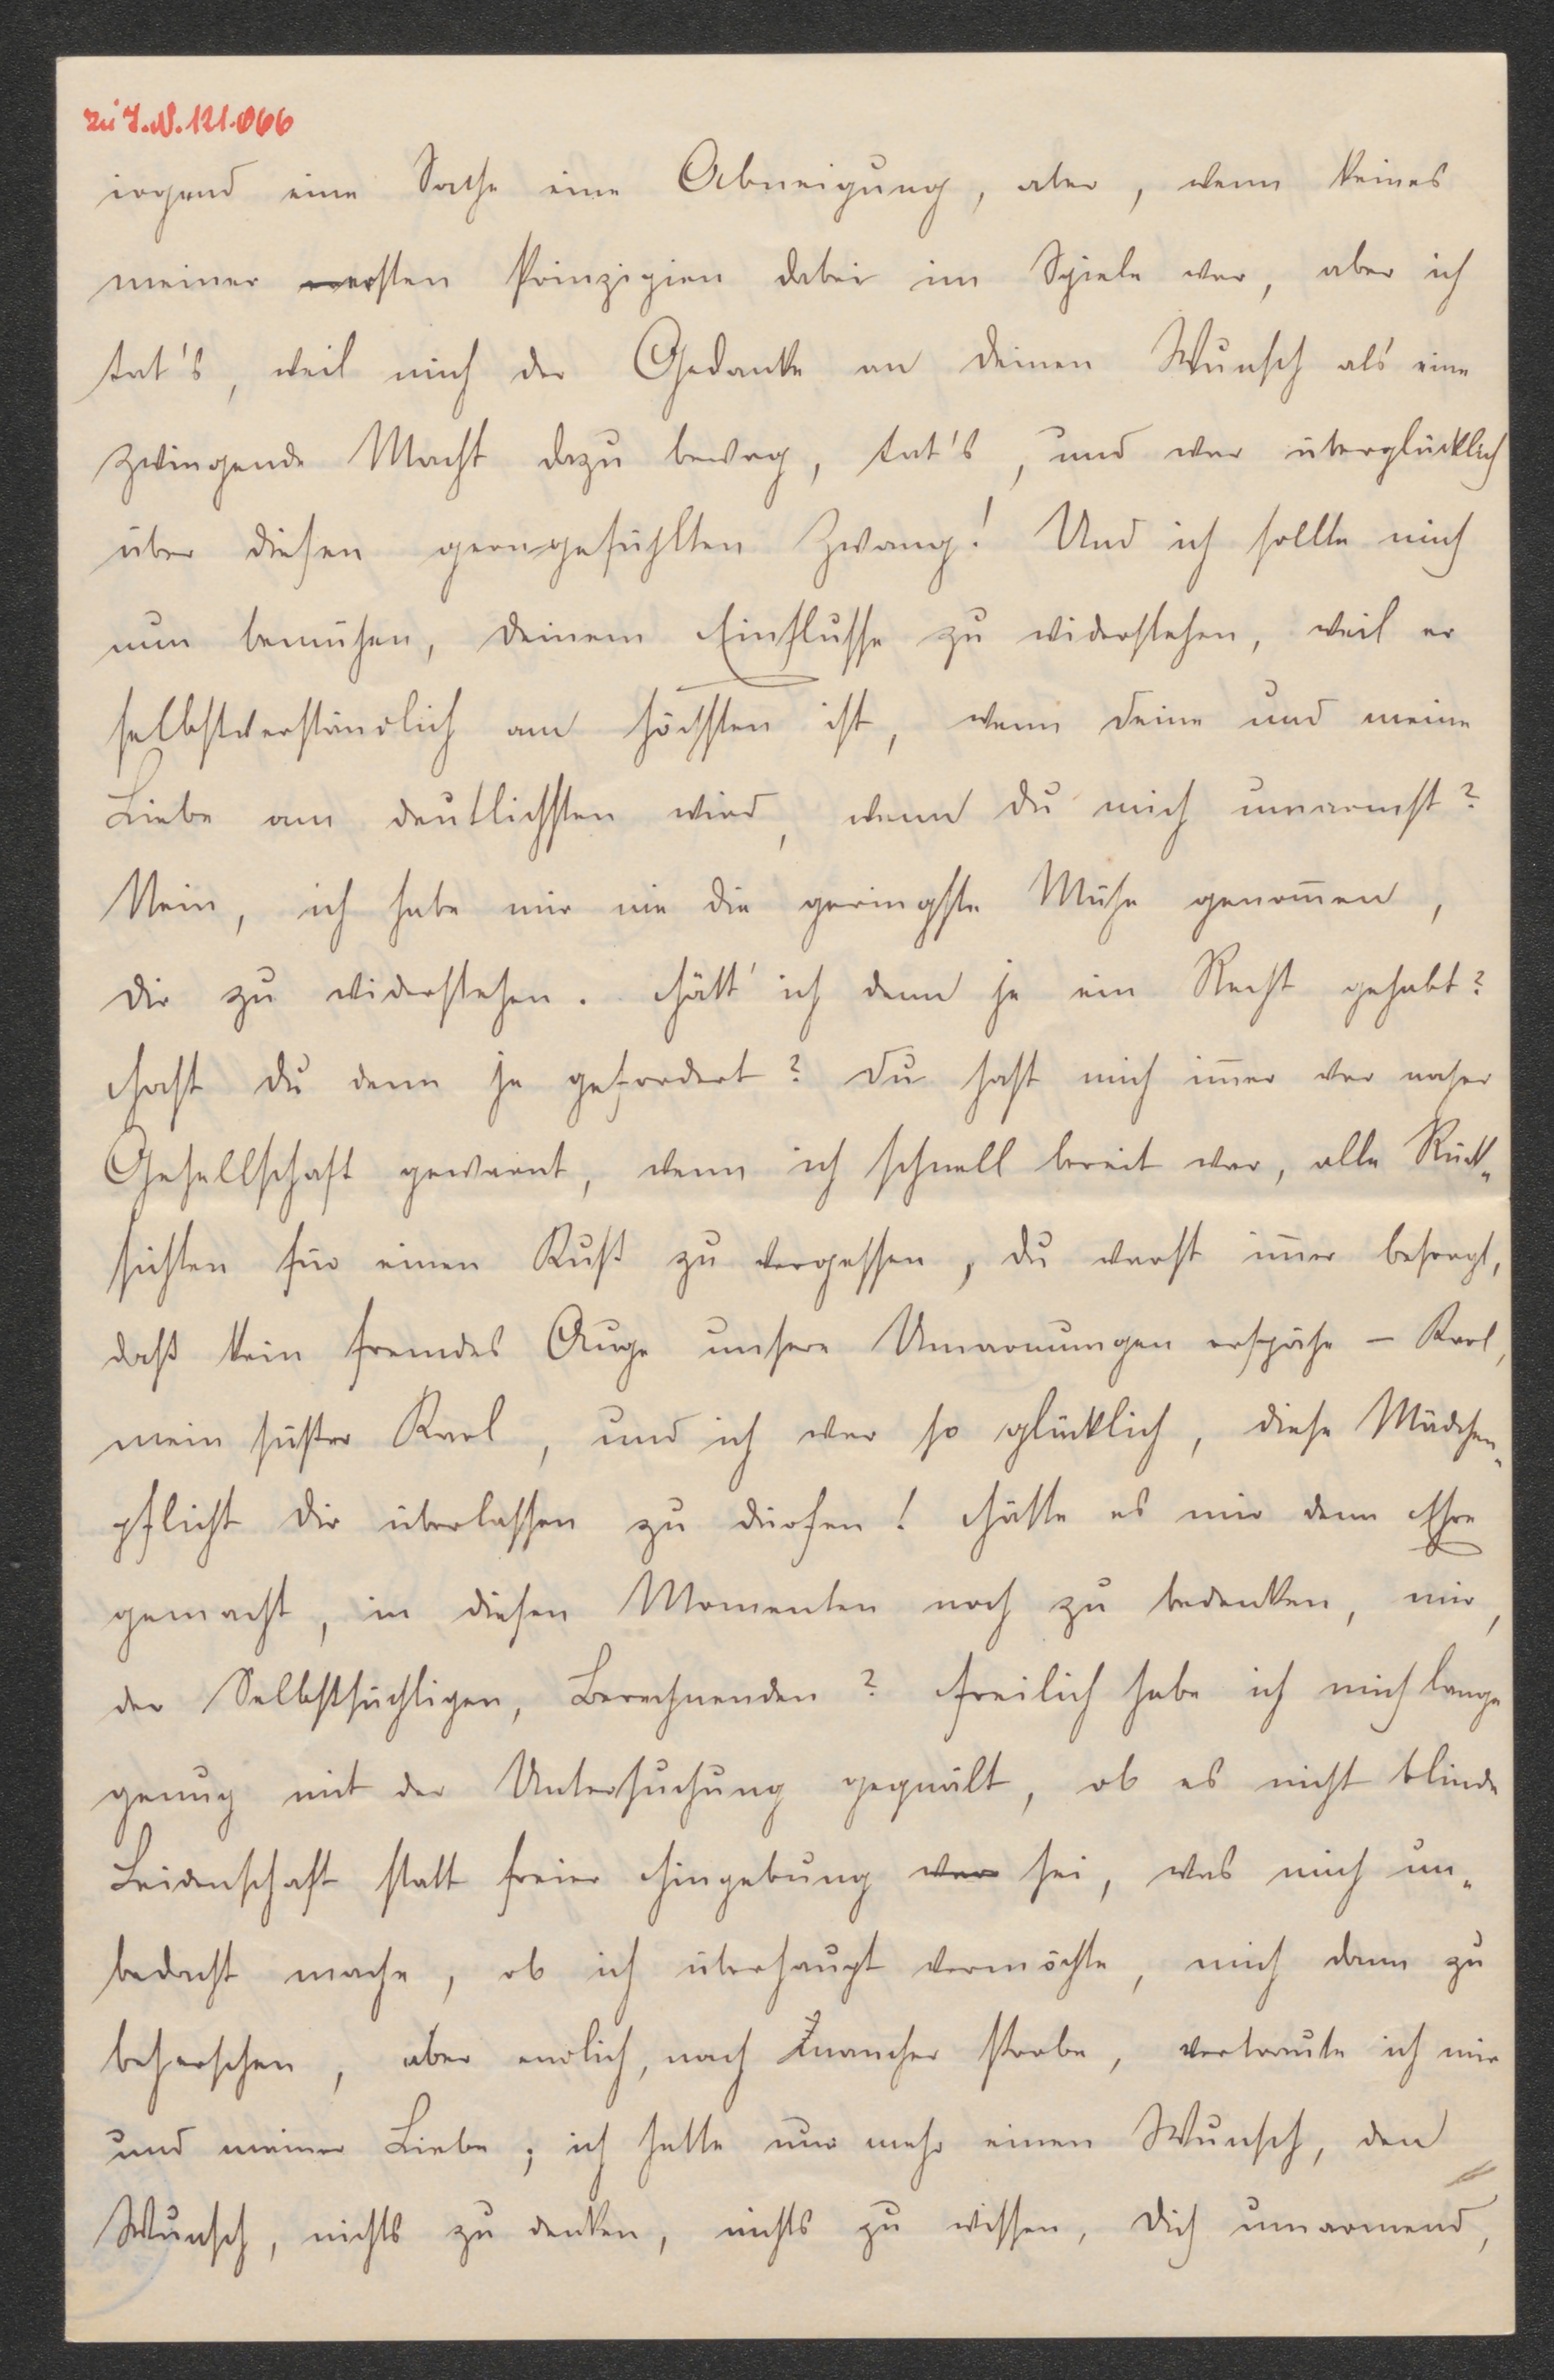 zu I.N. 121.066
irgend eine Sache eine Abneigung, aber, wenn keines
meiner ersten Prinzipien dabei im Spiele war, aber ich
tat's, weil mich der Gedanke an deinen Wunsch als eine
zwingende Macht dazu bewog, tat's, und war überglücklich
über diesen gerngefühlten Zwang! Und ich sollte mich
nun bemühen, deinem Einflusse zu widerstehen, weil er
selbstverständlich am höchsten ist, wenn deine und meine
Liebe am deutlichsten wird, wenn du mich umarmst?
Nein, ich habe mir nie die geringste Mühe genom̅en,
dir zu widerstehen. Hätt' ich denn je ein Recht gehabt?
Hast du denn je gefordert? Du hast mich im̅er vor naher
Gesellschaft gewarnt, wenn ich schnell bereit war, alle Rück-
sichten für einen Kuß zu vergessen, du warst im̅er besorgt,
daß kein fremdes Auge unsere Umarmungen erspähe – Karl,
mein süßer Karl, und ich war so glücklich, diese Mädchen-
pflicht dir überlassen zu dürfen! Hätte es mir denn Ehre
gemacht, in diesen Momenten noch zu bedenken, mir,
der Selbstsüchtigen, Berechnenden? Freilich habe ich mich lange
genug mit der Untersuchung gequält, ob es nicht blinde
Leidenschaft statt freier Hingebung war sei, was mich un-
bedacht mache, ob ich überhaupt vermöchte, mich dann zu
beherschen, aber endlich, nach mancher Probe, vertraute ich mir
und meiner Liebe; ich hatte nur mehr einen Wunsch, den
Wunsch, nichts zu denken, nichts zu wissen, dich umarmend,